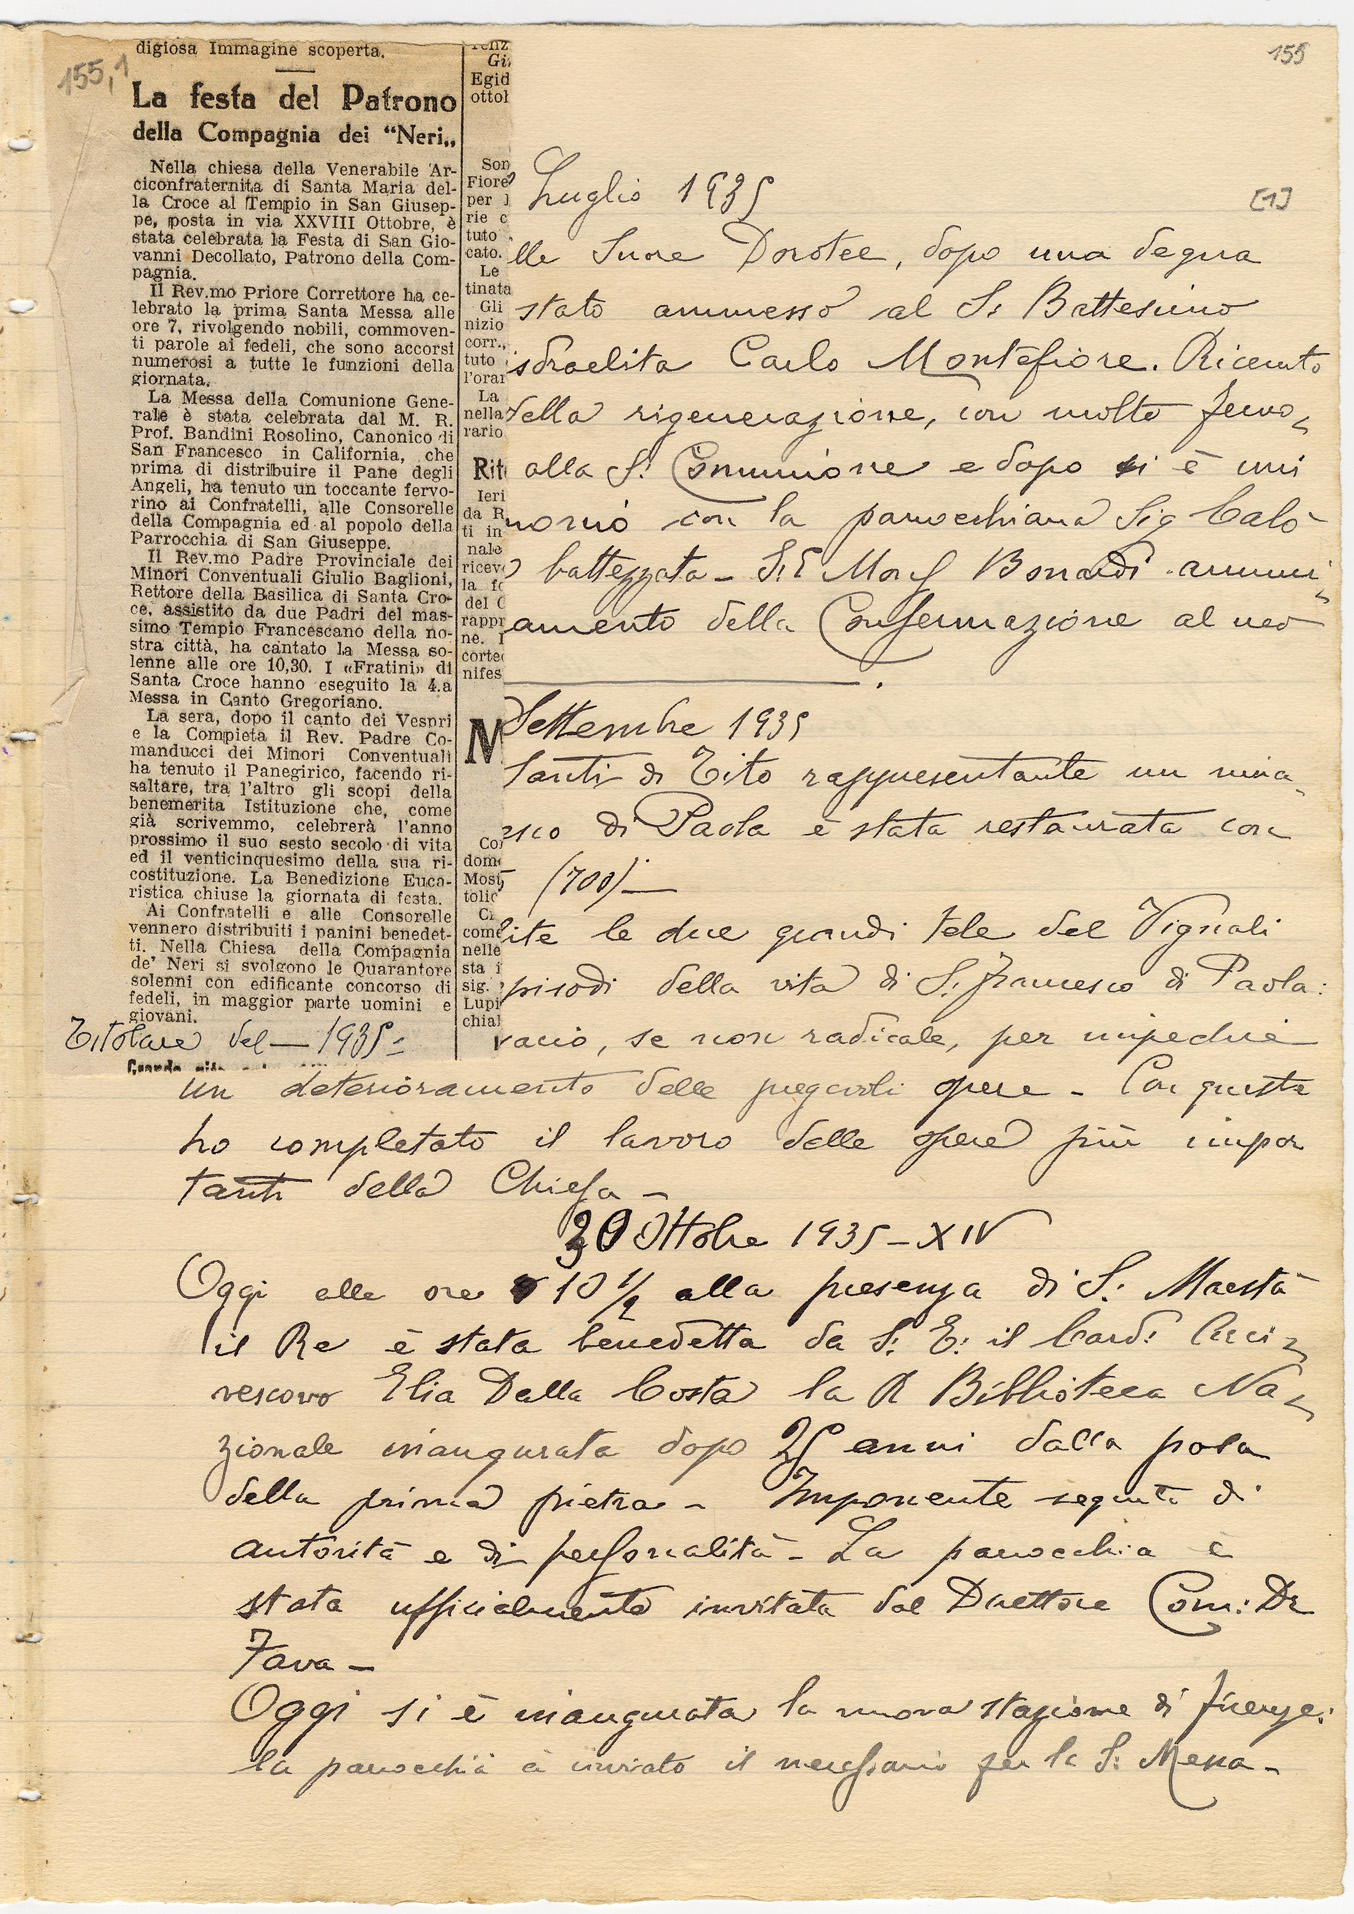 155
155,1
digiosa Immagine scoperta.
La festa del Patrono
della Compagnia dei "Neri„
Nella chiesa della Venerabile Ar-
ciconfraternita di Santa Maria del-
la Croce al Tempio in San Giusep-
pe, posta in via XXVIII Ottobre, è
stata celebrata la Festa di San Gio-
vanni Decollato, Patrono della Com-
pagnia.
Il Rev.mo Priore Correttore ha ce-
lebrato la prima Santa Messa alle
ore 7, rivolgendo nobili, commoven-
ti parole ai fedeli, che sono accorsi
numerosi a tutte le funzioni della
giornata.
La Messa della Comunione Gene-
rale è stata celebrata dal M. R.
Prof. Bandini Rosolino, Canonico di
San Francesco in California, che
prima di distribuire il Pane degli
Angeli, ha tenuto un toccante fervo-
rino ai Confratelli, alle Consorelle
della Compagnia ed al popolo della
Parrocchia di San Giuseppe.
Il Rev.mo Padre Provinciale dei
Minori Conventuali Giulio Baglioni,
Rettore della Basilica di Santa Cro-
ce, assistito da due Padri del mas-
simo Tempio Francescano della no-
stra città, ha cantato la Messa so-
lenne alle ore 10,30. I «Fratini» di
Santa Croce hanno eseguito la 4.a
Messa in Canto Gregoriano.
La sera, dopo il canto dei Vespri
e la Compieta il Rev. Padre Co-
manducci dei Minori Conventuali
ha tenuto il Panegirico, facendo ri-
saltare, tra l'altro gli scopi della
benemerita Istituzione che, come
già scrivemmo, celebrerà l'anno
prossimo il suo sesto secolo di vita
ed il venticinquesimo della sua ri-
costituzione. La Benedizione Euca-
ristica chiuse la giornata di festa.
Ai Confratelli e alle Consorelle
vennero distribuiti i panini benedet-
ti. Nella Chiesa della Compagnia
de' Neri si svolgono le Quarantore
solenni con edificante concorso di
fedeli, in maggior parte uomini e
giovani.
Titolare del — 1935 =
Egid
ottol
Son
Fiore
per
rie c
tuto
cato.
Le
tinata
Gli
nizio
corr.,
tuto
l'orar
La
nella
rario
Rit
Ieri
da R
ti in
nale
ricev
la fo
del C
rappr
ne.
corte
nifes
M
Co
dom
Most
tolic
come
nelle
sta i
sig.
Lupi
chial
Luglio 1935
[1]
lle Suore Dorotee, dopo una degna
stato ammesso al S. Battesimo
isdraelita Carlo Montefiore. Ricevuto
della rigenerazione, con molto fervo-
alla S. Comunione e dopo si è uni
monio con la parrocchiana Sig Calò
battezzata - S. E Mons Bonardi ammi-
amento della Confermazione al neo
Settembre 1935
Santi di Tito rappresentante un mira-
sco di Paola è stata restaurata con
(700) —
ite le due grandi tele del Vignali
pisodi della vita di S. Francesco di Paola:
vario, se non radicale, per impedire
un deterioramento delle pregevoli opere - Con queste
ho completato il lavoro delle opere più impor
tanti della Chiesa -
30 Ottobre 1935 - XIV
Oggi alle ore 10 1/2 alla presenza di S. Maestà
il Re è stata benedetta da S. E. il Card. Arci-
vescovo Elia Dalla Costa la R Biblioteca Na-
zionale inaugurata dopo 25 anni dalla posa
della prima pietra - Imponente seguito di
autorità e di personalità - La parrocchia è
stata ufficialmente invitata dal Direttore Com: Dr
Fava -
Oggi si è inaugurata la nuova stazione di Firenze:
la parrocchia à inviato il necessario per la S. Messa -